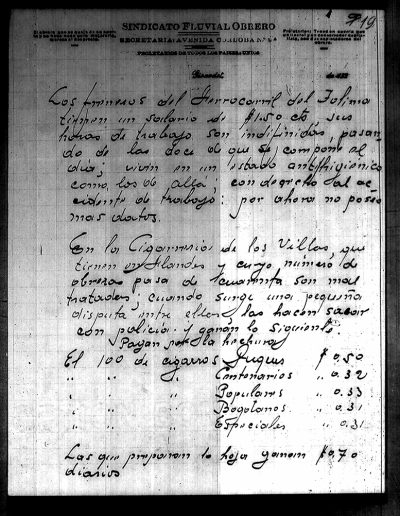 719
SINDICATO FLUVIAL OBRERO
SECRETARIA: AVENIDA CORDOBA
PROLETARIOS DE TODOS LOS PAISES: UNIOS
Girardot, de 192
Los fren​eros del Ferrocarril del Tolima
tienen un salario de $1.50 cts, sus
horas de trabajo son indifinidas, pasan
do de las doce de que se compone el
día; viven en un estado antihigiénico
como los de allá; con derecho al ac-
cidente de trabajo; por ahora no poseo
mas datos.
En la Cigarreria de los Villas, que
tienen en Flandes y cuyo número de
obreras pasa de cuarenta son mal
tratadas; cuando surge una pequeña
disputa entre ellas, las hacen sacar
con policía y ganan lo siguiente.
Pagan por la hechura
El 100 de cigarros Yuques $0.50
" " " Centenarios " 0.32
" " " Populares " 0.33
" " " Bogotanos " 0.31
" " " Especiales " 0.31
Las que preparan la hoja ganan $0.70
diarios